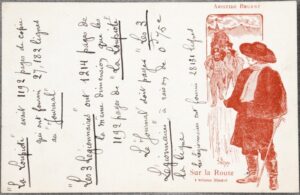 "La Loupiote" avait 1192 pages de copie
qui ont fourni 27,182 lignes
au "Journal"
"Les 3 légionnaires" ont 1214 pages de
la même dimension que les
1192 pages de "La Loupiote"
Le "Journal doit payer "Les 3
légionnaires" à raison de 0f
la ligne
Les légionnaires ont fourni 28131 lignes
ARISTIDE BRUANT
Sur la Route